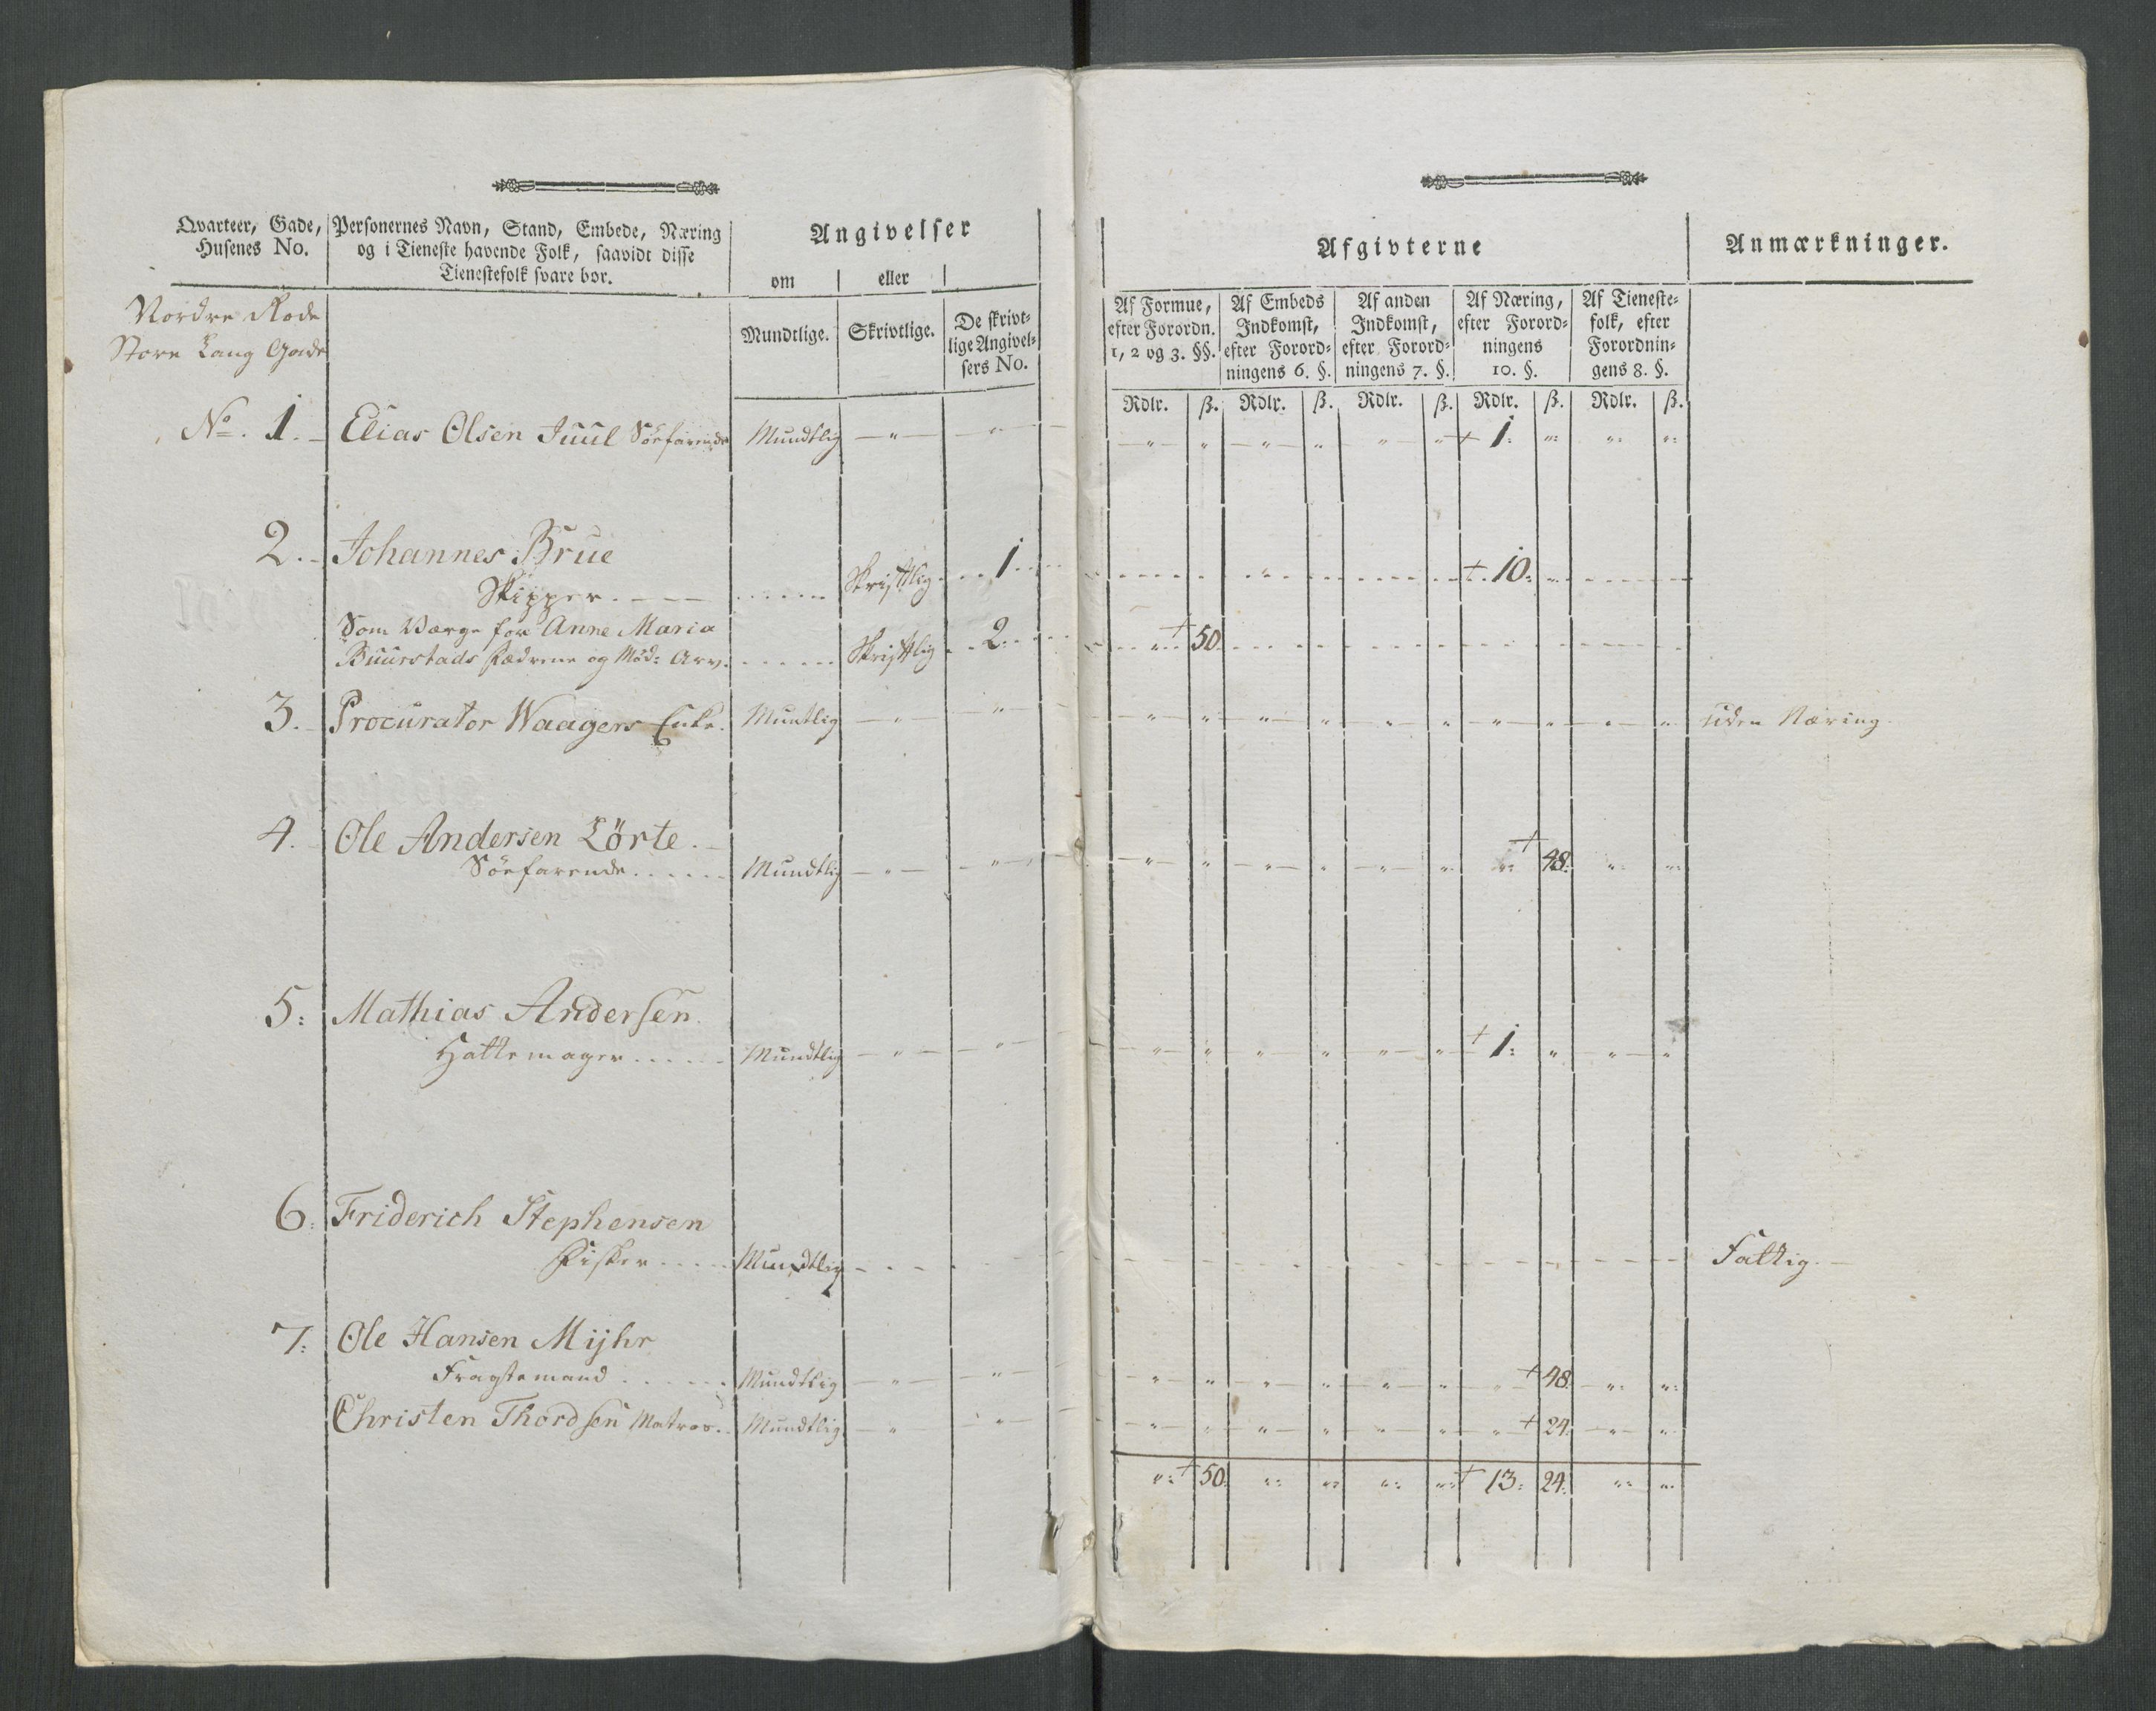 Qvarteer, Gade, Husenes No.
Personernes Navn, Stand, Embede, Næring
og i Tieneste havende Folk, saavidt disse
Tienestefolk svare bør.
Angivelser
om eller
Mundtlige. Skrivtlige. De skrivt-
lige Angivel-
sers No.
Afgivterne
Anmærkninger.
Af Formue,
efter Forordn.
1, 2 og 3. §§.
Af Embeds
Indkomst,
efter Forord-
ningens 6. §.
Af anden
Indkomst,
efter Forord-
ningens 7. §.
Af Næring,
efter Forord-
ningens
10. §.
Af Tieneste-
folk, efter
Forordnin-
gens 8. §.
Rdlr. ß. Rdlr. ß. Rdlr. ß. Rdlr. ß. Rdlr. ß.
Nordre Rode
Store Lang Gade
No. 1. Elias Olsen Juul Söefarende Mundtlig — " — " — " " " " " " + 1: ": ": ":
2. Johannes Brue
Skipper Skriftlig 1 + 10:
Som Værge for Anne Maria
Buurstads Fædrene og Möd: Arv. Skriftlig 2 + 50
3. Procurator Waagers Enke. Muntlig — " — " — " " " " " " " " " " uden Næring
4. Ole Andersen Lörte.
Söefarende Mundtlig — " — " — " " " " " " ": + 48: " ":
5: Mathias Andersen
Hattemager Mundtlig — " — " — " " " " " " + 1: " " "
6: Friderich Stephensen
Fisker Mundtlig Fattig.
7: Ole Hansen Mijhr
Fragtemand Mundtlig — " — " — " " " " " " " + 48 ": ":
Christen Thordsen Matros. Mundtlig — " — " — " " " " " " " + 24: " "
": + 50: ": ": ": ": + 13: 24: ": ":